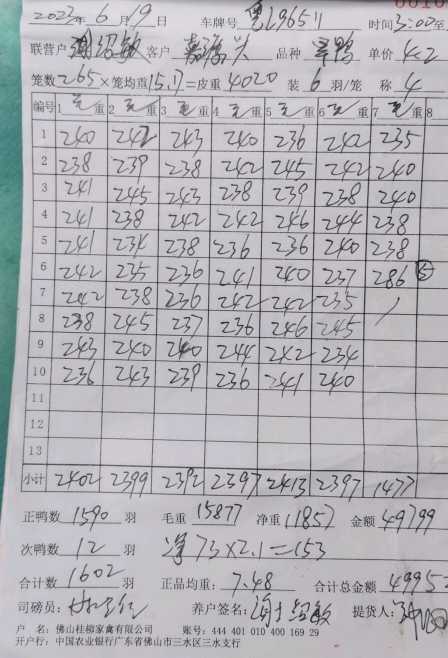 2023年6月19日 车牌号 L96511 时间3:00至
联营户 客户 品种 鸭 单价 4.2
笼数265×笼均重15.17=皮重4020 装6羽/笼 称4
编号 1 毛重 2 毛重 3 毛重 4 毛重 5 毛重 6 毛重 7 毛重 8
1 240 242 243 240 236 242 235
2 238 239 238 242 245 242 240
3 241 245 243 238 239 238 240
4 241 238 242 242 246 244 238
5 241 234 238 236 236 240 238
6 242 235 236 241 240 237 286 ⑤
7 242 238 236 242 242 235
8 238 245 237 236 246 245
9 243 240 240 244 242 234
10 236 243 239 236 241 240
11
12
13
小计 2402 2399 2392 2397 2413 2397 1477
正鸭数 1590 羽 毛重 15877 净重 11857 金额 49799
次鸭数 12 羽 净73×2.1=153
合计数 1602 羽 正品均重: 7.48 合计总金额 4995
司磅员: 养户签名: 提货人:
户 名: 佛山桂柳家禽有限公司 账号: 444 401 010 400 169 29
开户行: 中国农业银行广东省佛山市三水区三水支行